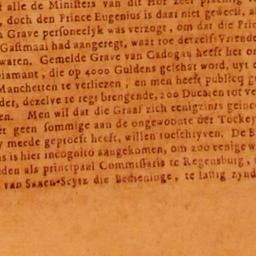 t alle de Ministers van dit Hof zeer prachtig
, doch den Prince Eugenius is daar niet geweest, al
n Grave personeelyk was verzogt, om dat die Prin
Gastmaal had aangeregt, waar toe derzelfs Vriende
waren. Gemelde Grave van Cadogan heeft het on
Diamant, die op 4000 Guldens geschat word, uyt
Manchetten te verliezen, en men heeft publicq g
der, dezelve te regt brengende, 200 Ducaten tot ve
en. Men wil dat die Graaf zich eenigzints geinc
et geen sommige aan de ongewoonte der Tockey
y meede geproeft heeft, willen toeschryven. De B
ns is hier incognito aangekomen, om 200 eenige w
eden als principaal Commissaris te Regensburg,
van Saxen-Seytz die Bedieninge, te lastig zynd